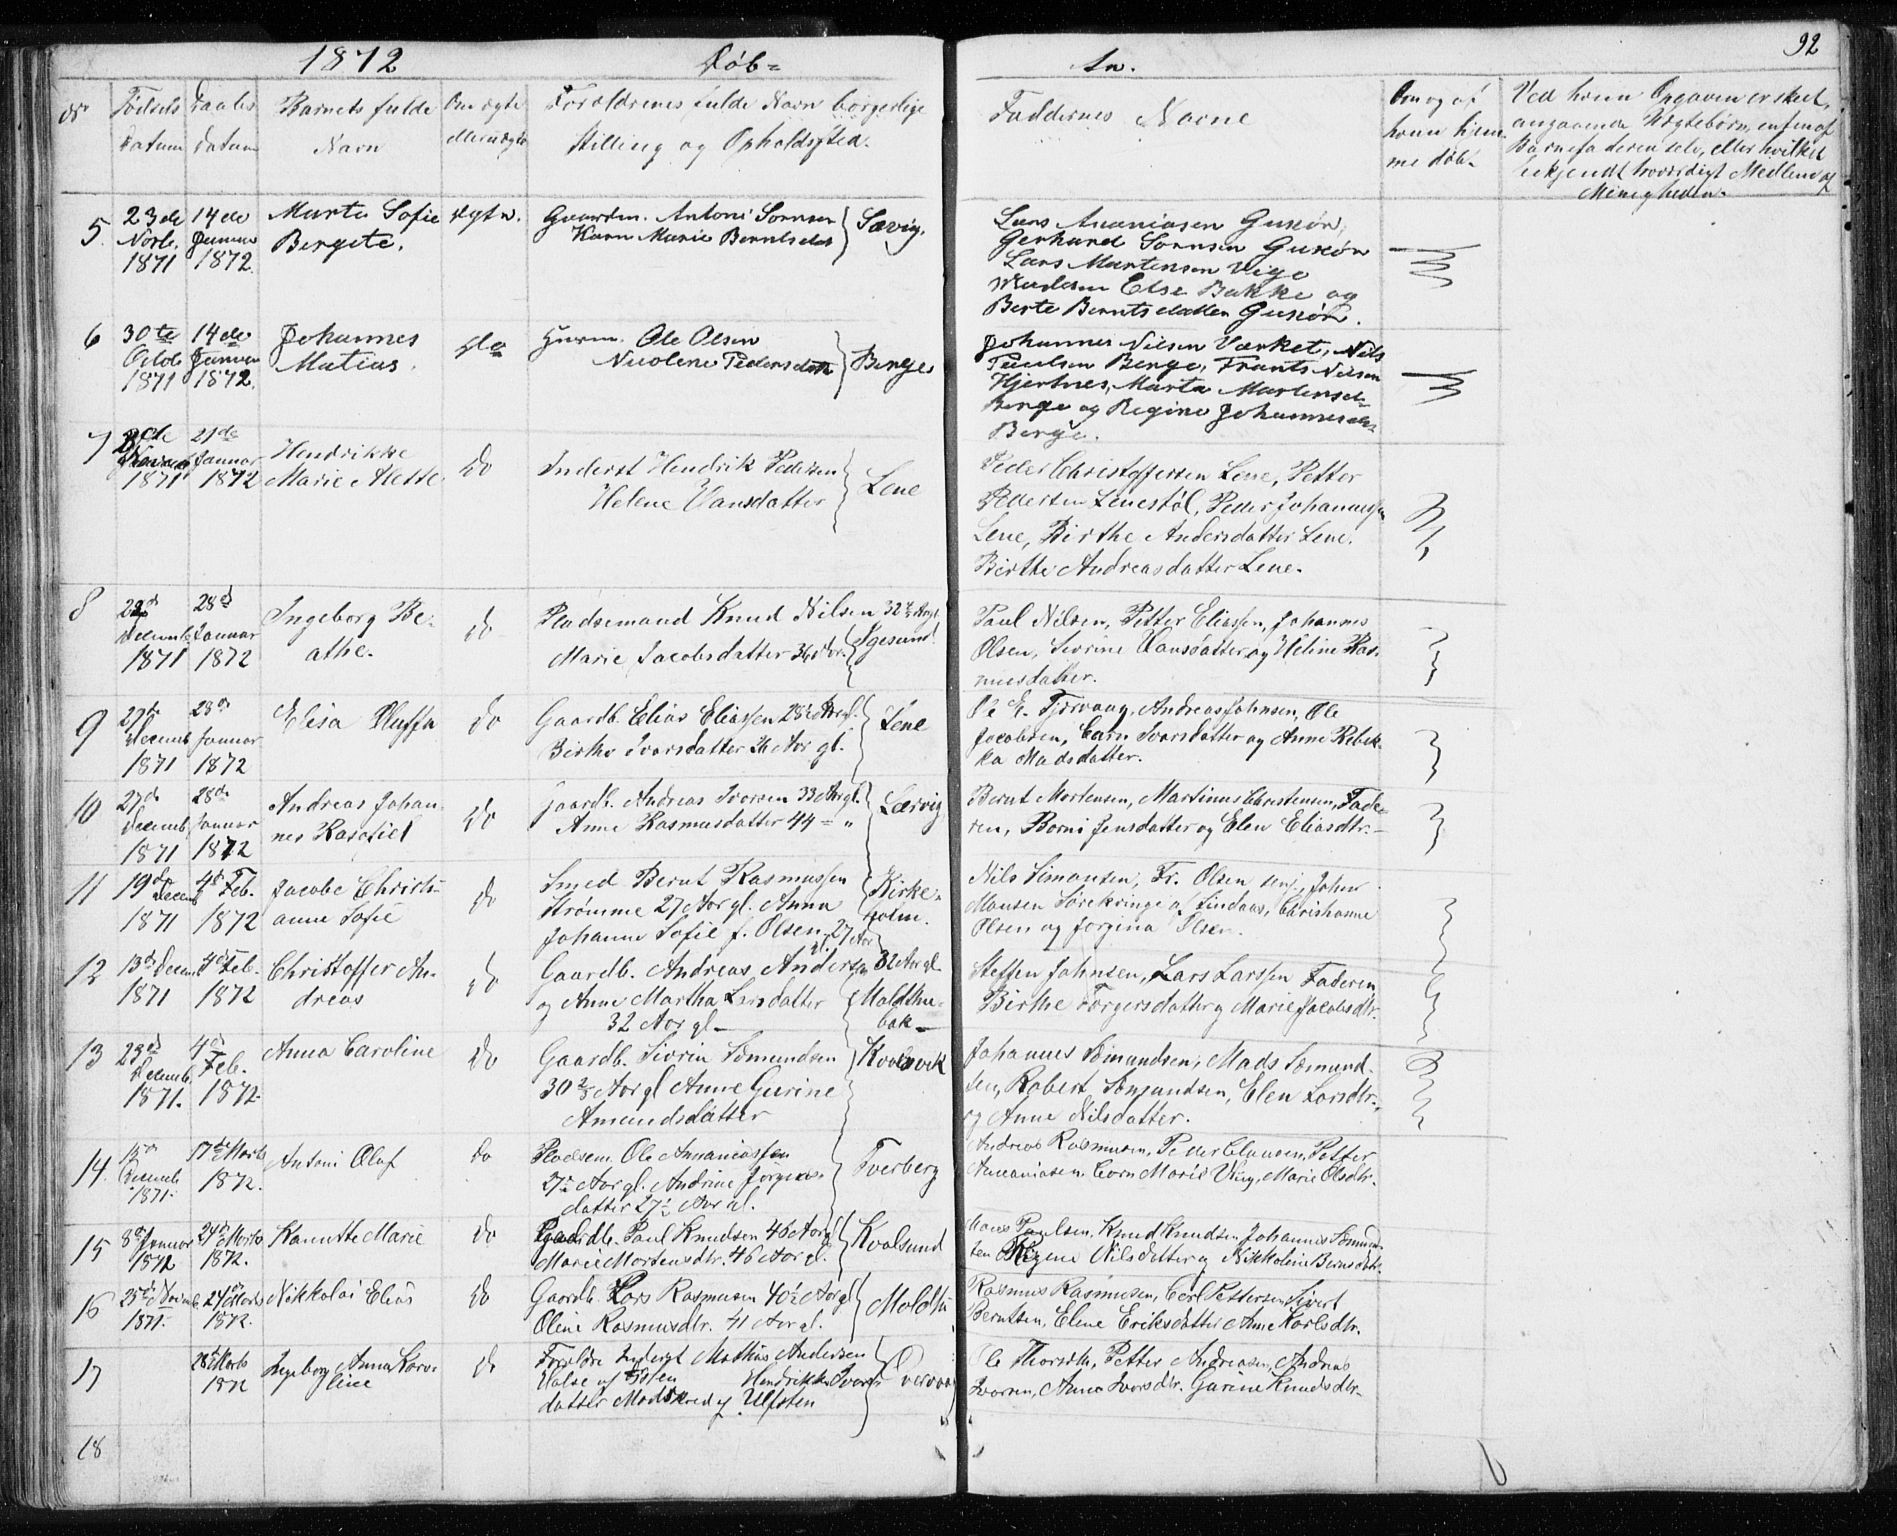 1872 Døb= An. 92
Nr
Fødsels Datum
Daabs Datum
Barnets fulde Navn
Om ægte eller uægte
Forældrenes fulde Navn borgerlige Stilling og Opholdssted.
Faddernes Navne
Om og af hvem hjemme døbt
Ved hvem Opgaven er skeet, angaaende Uægtebørn, enten af Barnefaderen selv, eller hvilket bekjendt troværdigt Medlem af Menigheden.
5. 23de Novbr. 1871
14de Januar 1872.
Marta Sofie Bergete.
ægte.
Gaardm. Antoni Sornsen
Karn Marie Berntsdat
Sævig.
Lars Ananiasen Guskøn,
Gerhard Sornsen Guskøn
Lars Martensen Vige
Madam Else Bakke og
Berte Berntsdatter Guskøn.
6 30te Octob 1871
14de Januar 1872.
Johannes Matias.
do
Huusm. Ole Olsen
Nicoline Pedersdatt
Berge
Johannes Nilsen Værket, Nils
Paulsen Berge, Frants Nilsen
Hjertnes, Marta Martensd.
Berge og Regine Johannesd.
Berge.
7 1871
21de Januar 1872
Hendrikke Marie Alette
do
Inderst Hendrik Pedersen
Helene Hansdatter
Lene
Peder Christoffersen Lene, Petter
Pedersen Lenestøl, Peder Johannessen
Lene, Birthe Andersdatter Lene.
Birthe Andreasdatter Lene.
8 22d Decemb 1871
28d Januar 1872
Ingeborg Beathe.
do
Pladsemand Knud Nilsen 32½ Aar gl.
Marie Jacobsdatter 36 Aar.
Igesund
Paul Nilsen, Petter Eliassen, Johannes
Olsen, Sivrine Hansdatter og Heline Rasmusdatter.
9 27de Decemb 1871
28de Januar 1872
Elisa Pluffa
do
Gaardb. Elias Eliassen 28½ Aar gl.
Birthe Ivarsdatter 26 Aar gl.
Lene
Ole E. Tjervaag, Andreas Johnsen, Ole
Jacobsen, Carn Ivarsdatter og Anne Rebekka Madsdatter.
10 27de Decemb 1871
28de Januar 1872
Andreas Johannes Kasofiel
do
Gaardb. Andreas Ivorsen 33 Aar gl.
Anne Rasmusdatter 44 - "
Særvig
Bernt Mortensen, Martinus Christensen, Faderen, Borni Jensdatter og Elen Eliasdtr. -
11 19de Decemb 1871
4de Feb. 1872
Jacobe Christianne Sofie
do
Smed Bernt Rasmussen
Strømme 27 Aar gl. Anna
Johanne Sofie f. Olsen, 27 Aar gl.
Kirkeholm.
Nils Simonsen, Fr. Olsen senj. John
Monsen Sørekringe og Lindaas, Christianne
Olsen og Jorgina Olsen.
12 13de Decem 1871
4de Feb. 1872
Christoffer Andreas
do
Gaardb. Andreas Andersen 32 Aar gl.
og Anne Martha Larsdatter
32 Aar gl -
Moldtubak -
Steffen Johnsen, Lars Larssen Faderen
Birthe Torgersdatter og Marie Jacobsdtr.
13 23de Decemb. 1871.
4de Feb. 1872.
Anna Caroline
do
Gaardb. Sivrin Sæmundsen
30 ⅔ Aar gl Anne Gurine
Amundsdatter
Kvalsvik
Johannes Sæmundsen, Mads Sæmundsen, Robert Sæmundsen, Elen Larsdtr.,
og Anne Nilsdatter.
14. 15de Decemb 1871.
17de Marts 1872.
Antoni Olaf
do
Pladsem. Ole Annaniassen
27½ Aar gl. Andrine Jörgensdatter 27½ Aar gl.
Tverberg
Andreas Rasmusen, Peder Clausen, Petter
Annaniasen, Corn Marie Ving, Marie Olsdtr.
15 8de Januar 1872
24de Marts 1872.
Kanutte Marie
do
Gaardb. Paul Knudsen 46 Aar gl
Marie Mortensdtr. 46 Aar gl.
Kvalsund
Hans Paulsen, Knud Knudsen, Johannes Sæmundsen Regine Nilsdatter og Nikkoline Berntsdatr.
16 25de Novemb 1871.
24de Marts 1872.
Nikkolai Elias
do
Gaardb. Lars Rasmusen 40½ Aar gl
Oline Rasmusdtr. 41 Aar gl.
Moldtu
Rasmus Rasmusen, Carl Pettersen, Sivert
Berntsen, Elene Eriksdatter Anne Karlsdtr.
17
28de Marts 1872
Ingeborg Anna Karoline
do
Forældre Inderst Mathias Andersen
Hendrikke Ivarsdatter
Ulfsten
Ole Thorsen, Petter Andreasen, Andreas
Ivarsen, Anne Ivarsdtr. Gurine Knudsdtr.
18